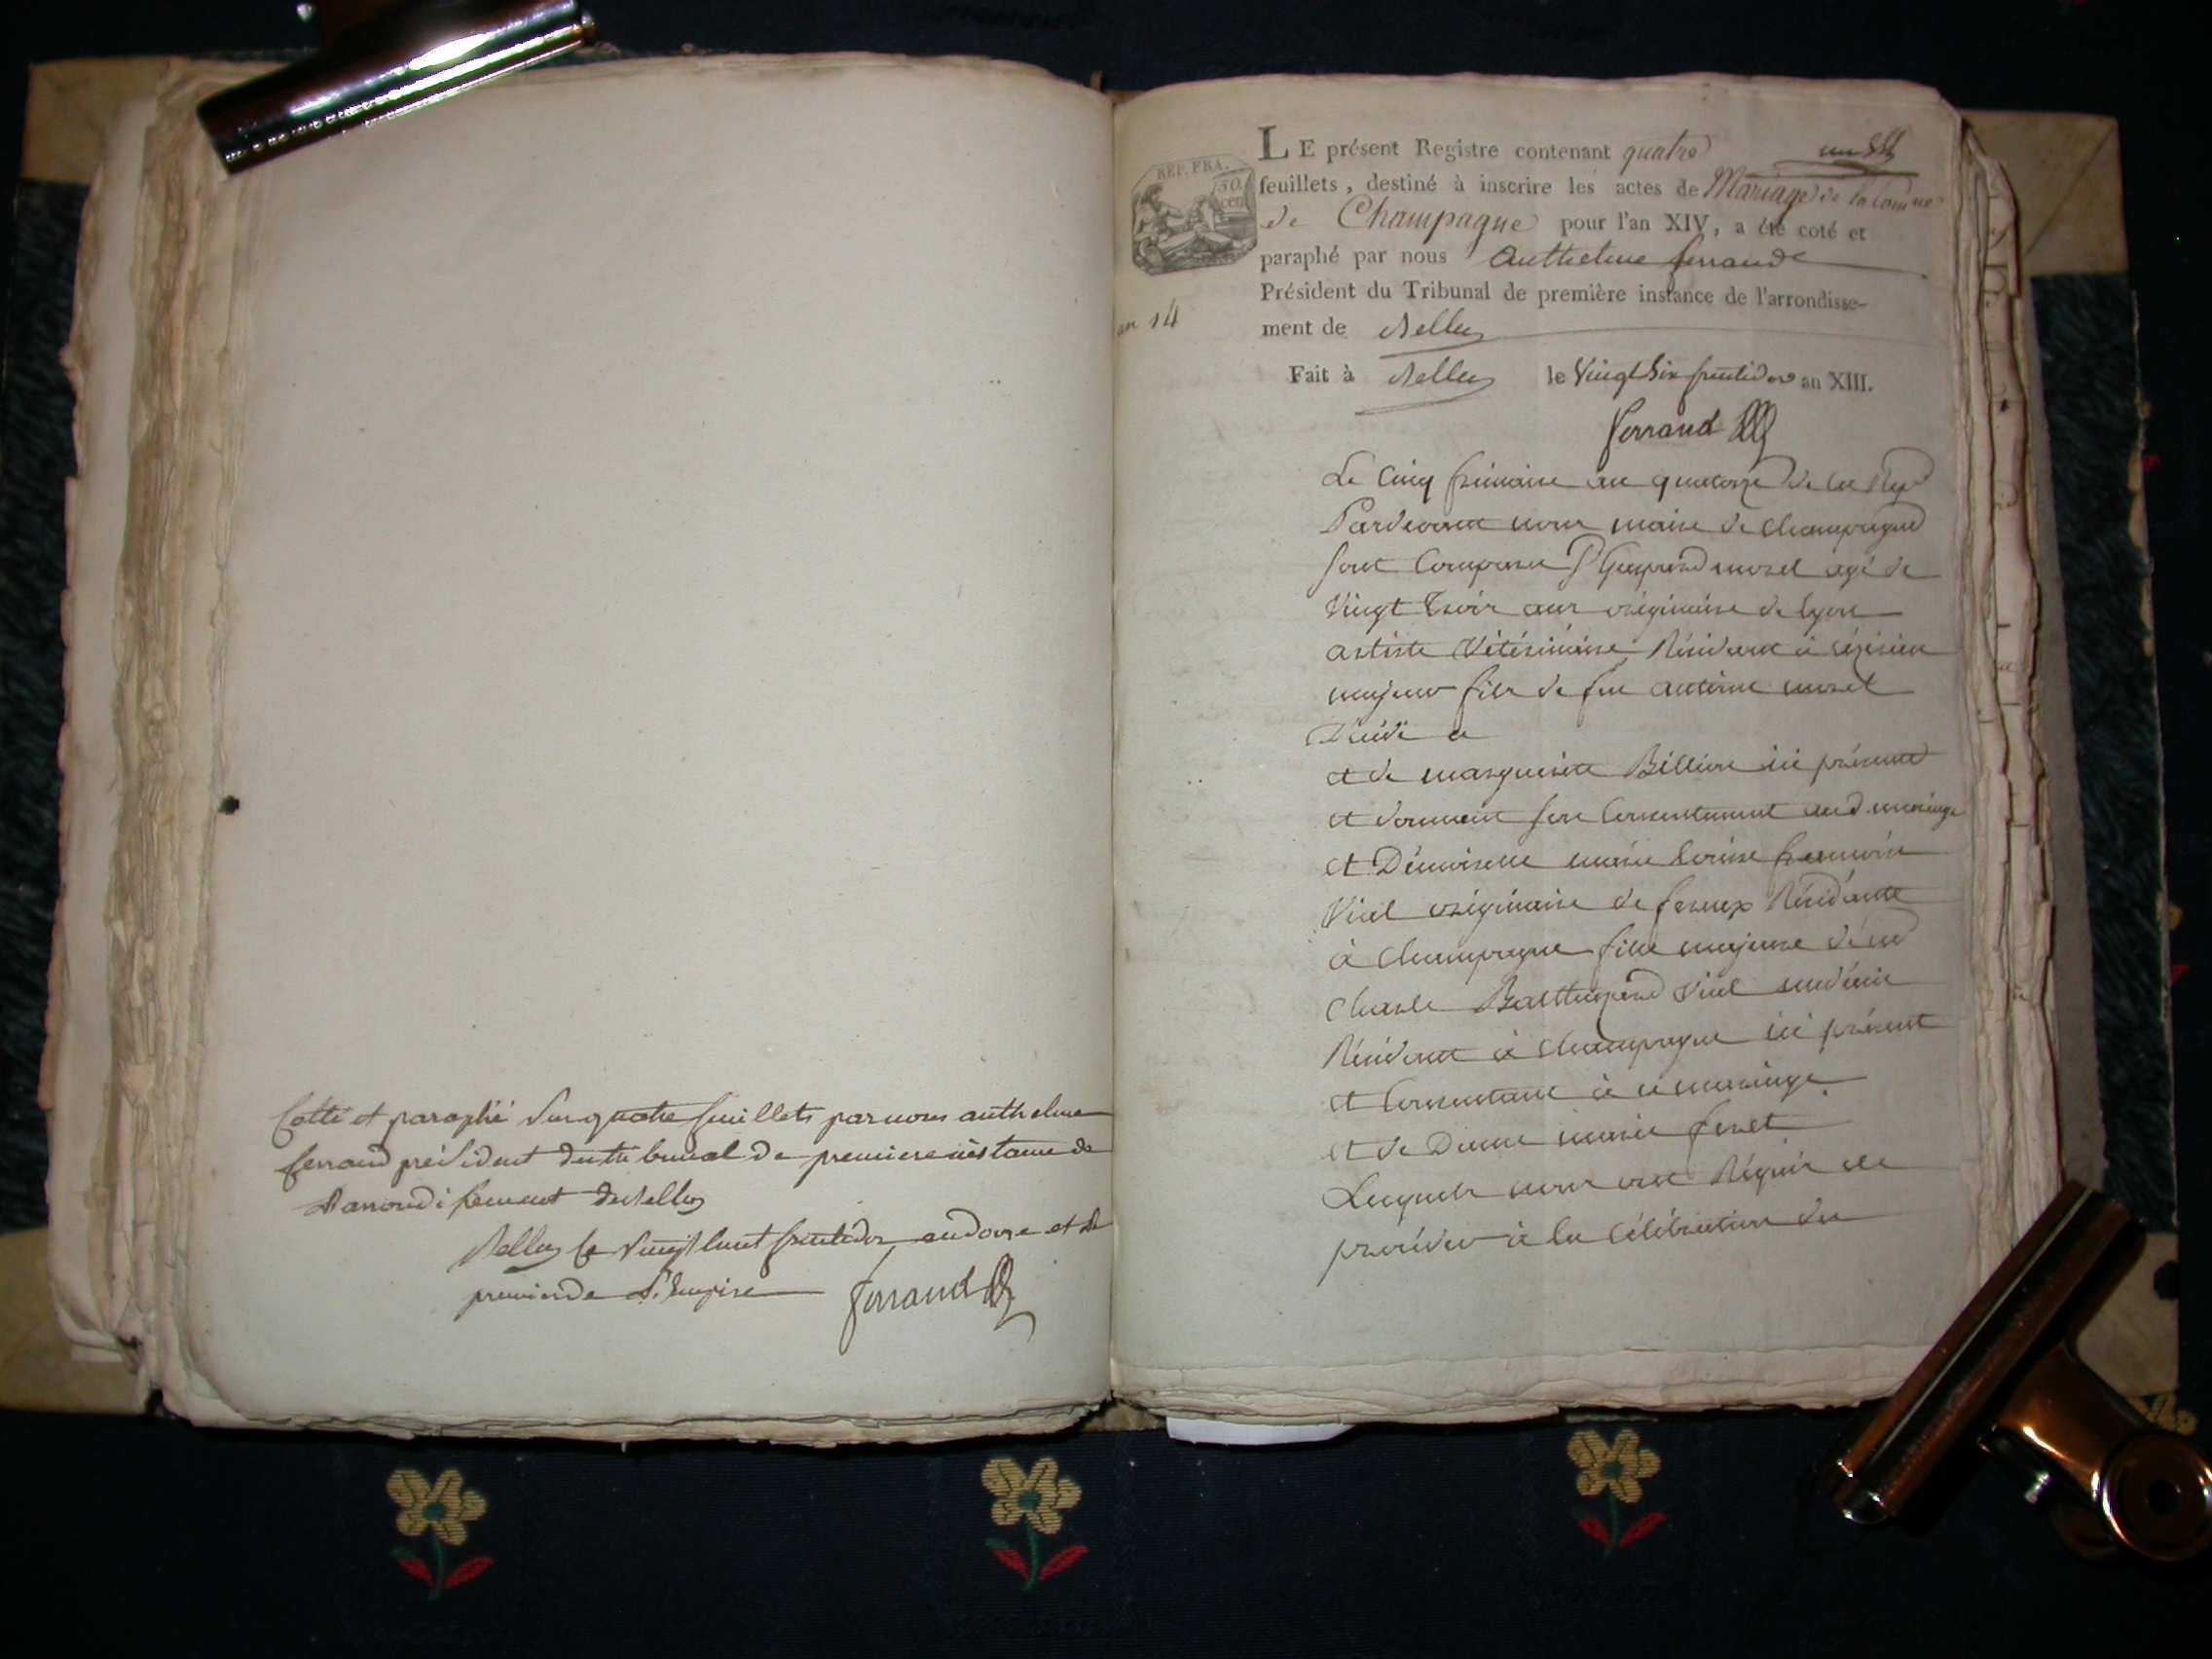 Cotté et paraphé sur quatre feuillets par nous anthelme
ferrand président du tribunal de premiere instance de
L'arrondissement de Belley
Belley le vingt huit fructidor an douze et Le
premier de L'Empire ferrand
REP. FRA.
50
cen
an 14
LE présent Registre contenant quatre un
feuillets, destiné à inscrire les actes de Mariage de la Comune
de Champagne pour l'an XIV, a été coté et
paraphé par nous Anthelme ferrand
Président du Tribunal de première instance de l'arrondisse-
ment de Belley
Fait à Belley le Vingt Six fructidor an XIII.
ferrand
Le Cinq frimaire an quatorze de la Rep
Pardevant nous maire de Champagne
sont Comparu Sr Gaspard morel agé de
Vingt trois ans originaire de lyon
artiste Vétérinaire Résidant à Cézérieu
majeur fils de feu antoine morel
Décédé a
et de marguerite Billion ici présente
et donnant son Consentement aud mariage
et Démoiselle marie Louise francoise
Viel originaire de Résidante
à Champagne fille majeure de
Charle Balthazard Viel medécin
Résidant à Champagne ici présent
et Consentant à ce mariage
et de Dame marie
Lesquels nous ont Réquis de
procéder à la Célébration du